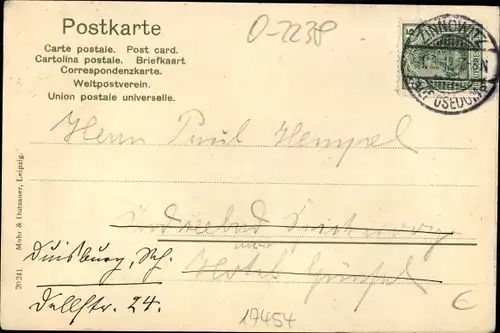 Postkarte
Carte postale. Post card.
Cartolina postale. Briefkaart
Correspondenzkarte.
Weltpostverein.
Union postale universelle.
O-2238
ZINNOWITZ
USEDOM
Herrn Paul Hempel
Hotel
Duisburg,
Dellstr. 24.
17454
€
20241 Mohr & Dutzauer, Leipzig.